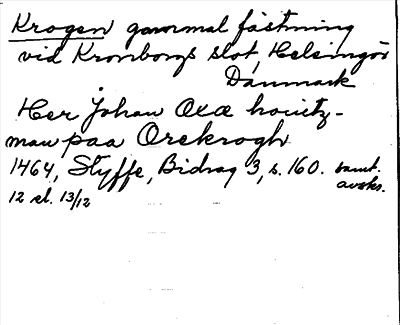 Krogen gammal fästning
vid Kronborgs slot, Helsingör
Danmark
Her Johan Oxa houitz-
man paa Orekrogh
1464, Styffe, Bidrag 3, s. 160. samt.
avskr.
12 el. 13/12